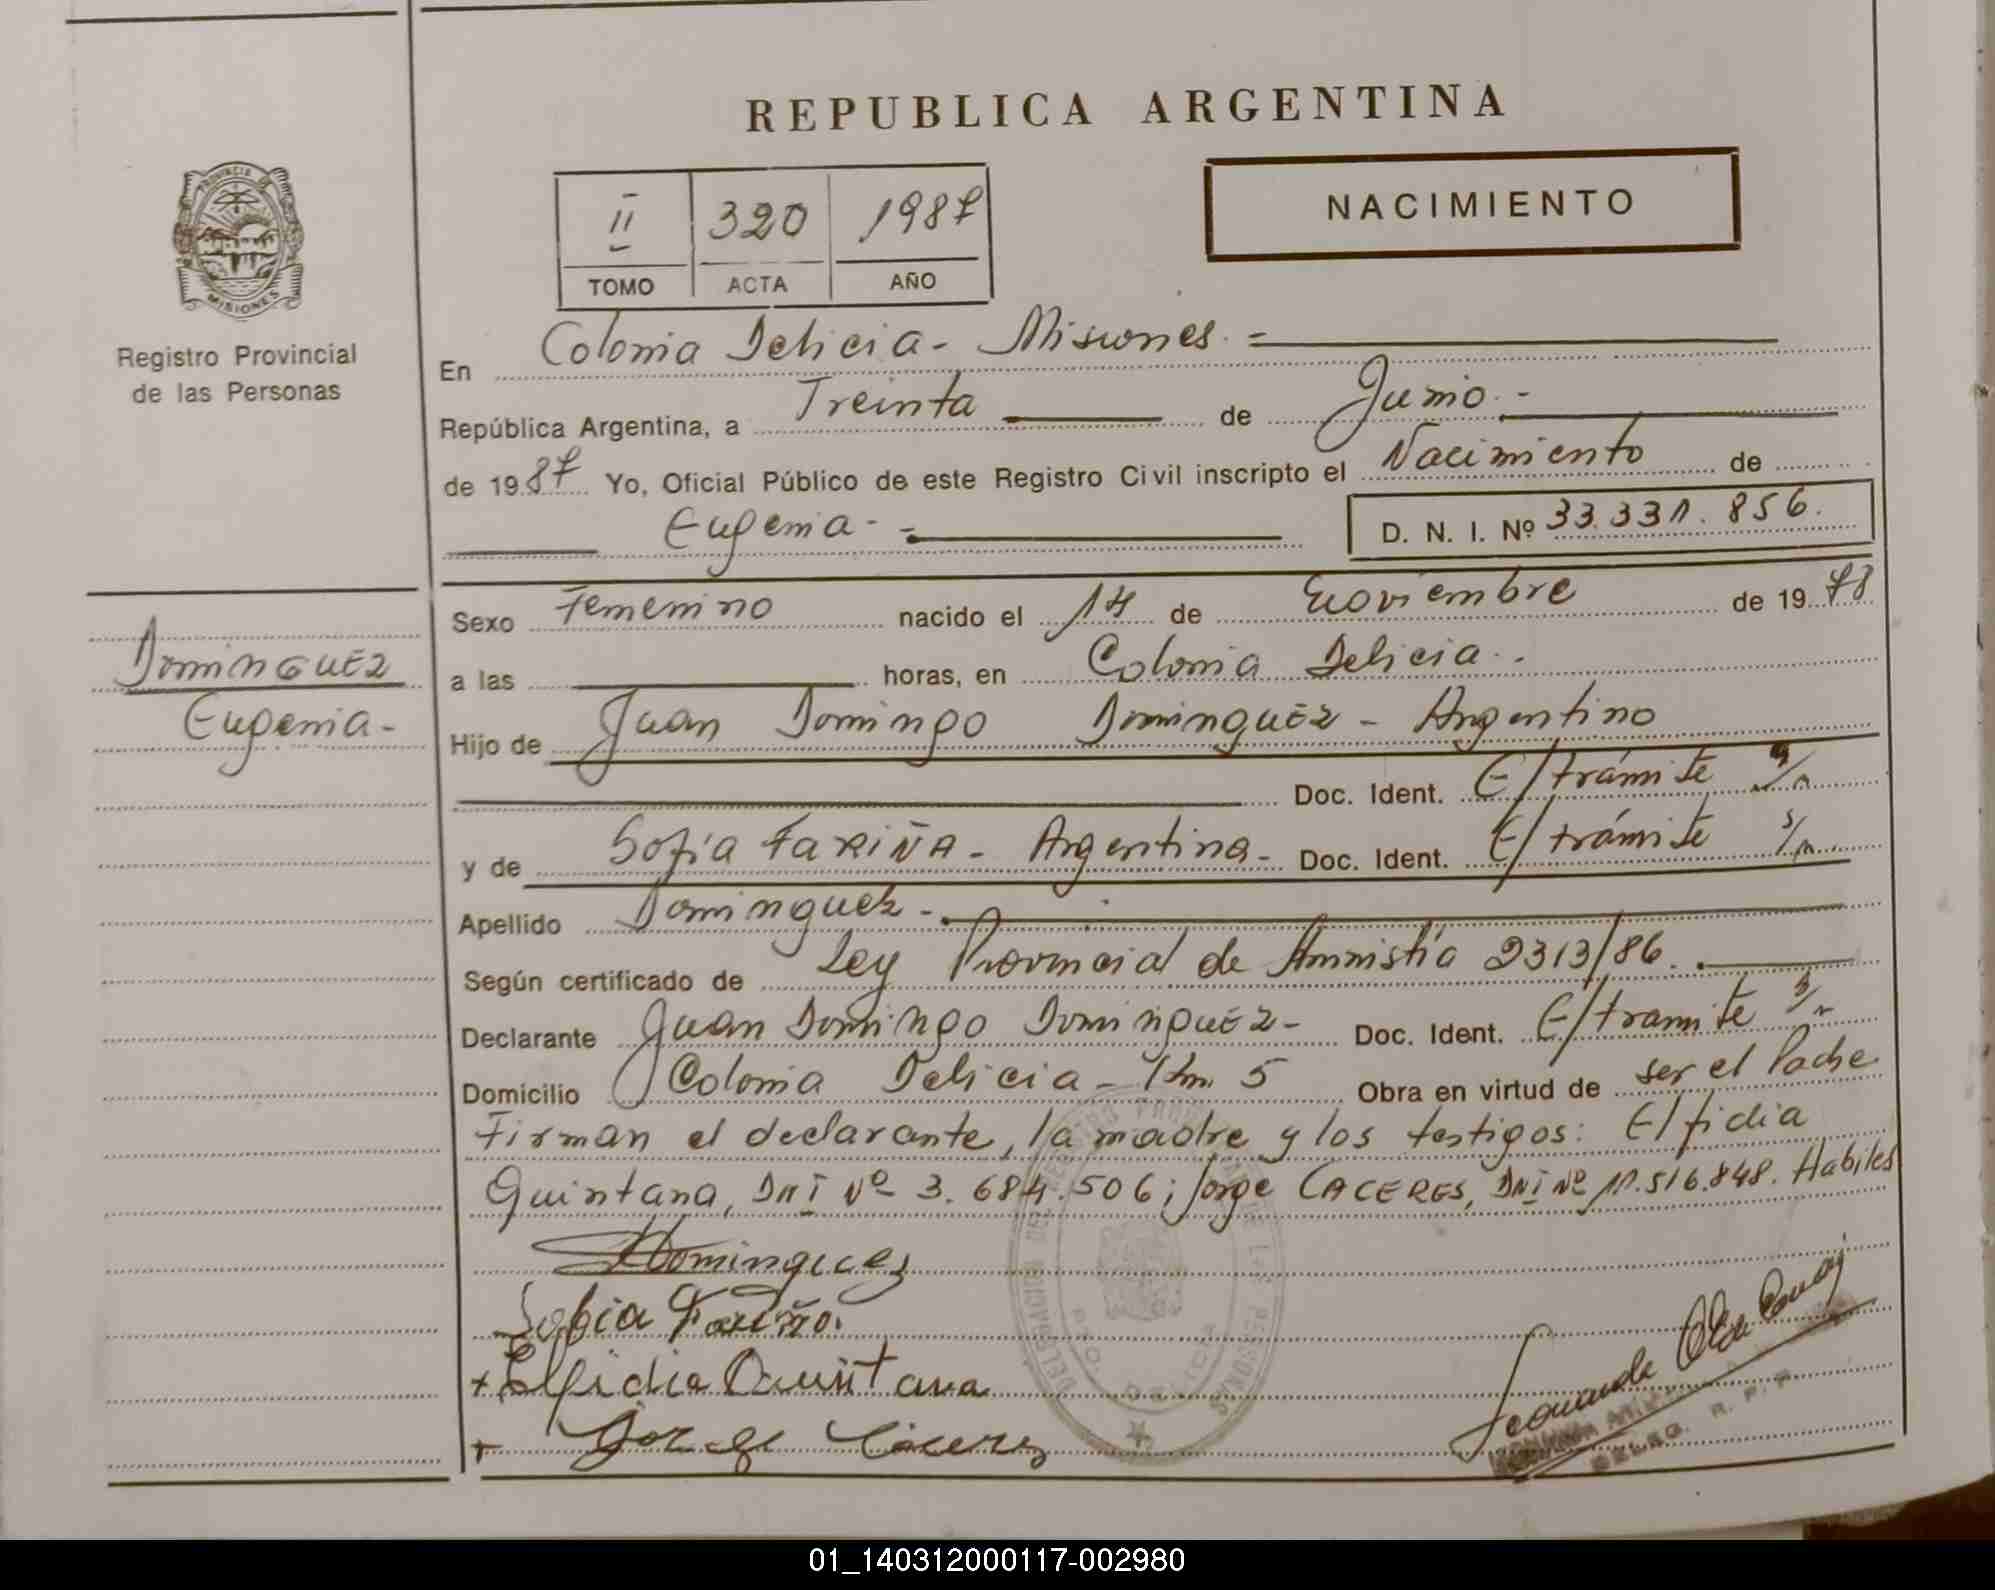 REPUBLICA ARGENTINA
NACIMIENTO
II 320 1987
TOMO ACTA AÑO
PROVINCIA
MISIONES
Registro Provincial
de las Personas
En Colonia Delicia - Misiones.
República Argentina, a Treinta de Junio.-
de 1987 Yo, Oficial Público de este Registro Civil inscripto el Nacimiento de
Eugenia.-
D. N. I. Nº 33.331.856.
Sexo Femenino nacido el 14 de Noviembre de 1978
DOMINGUEZ
Eugenia-
a las horas, en Colonia Delicia.-
Hijo de Juan Domingo DominguEz - Argentino
Doc. Ident. E/trámite s/n
y de Sofía FARIÑA - Argentina - Doc. Ident. E/trámite s/n
Apellido Dominguez.-
Según certificado de Ley Provincial de Amnistía 2313/86.
Declarante Juan Domingo DominguEz- Doc. Ident. E/tramite s/n
Domicilio Colonia Delicia - Km 5 Obra en virtud de ser el Padre
Firman el declarante, la madre y los testigos: Elfidia
Quintana, DNI Nº 3.684.506; Jorge CACERES, DNI Nº 11.516.848. Habiles
Dominguez
Sofia Fariña.
+ Elfidia Quintana
+ Jorge Caceres
DELEGACION DEL REGISTRO PROVINCIAL DE LAS PERSONAS
DELICIA
DELEG. R. P. P.
01_140312000117-002980